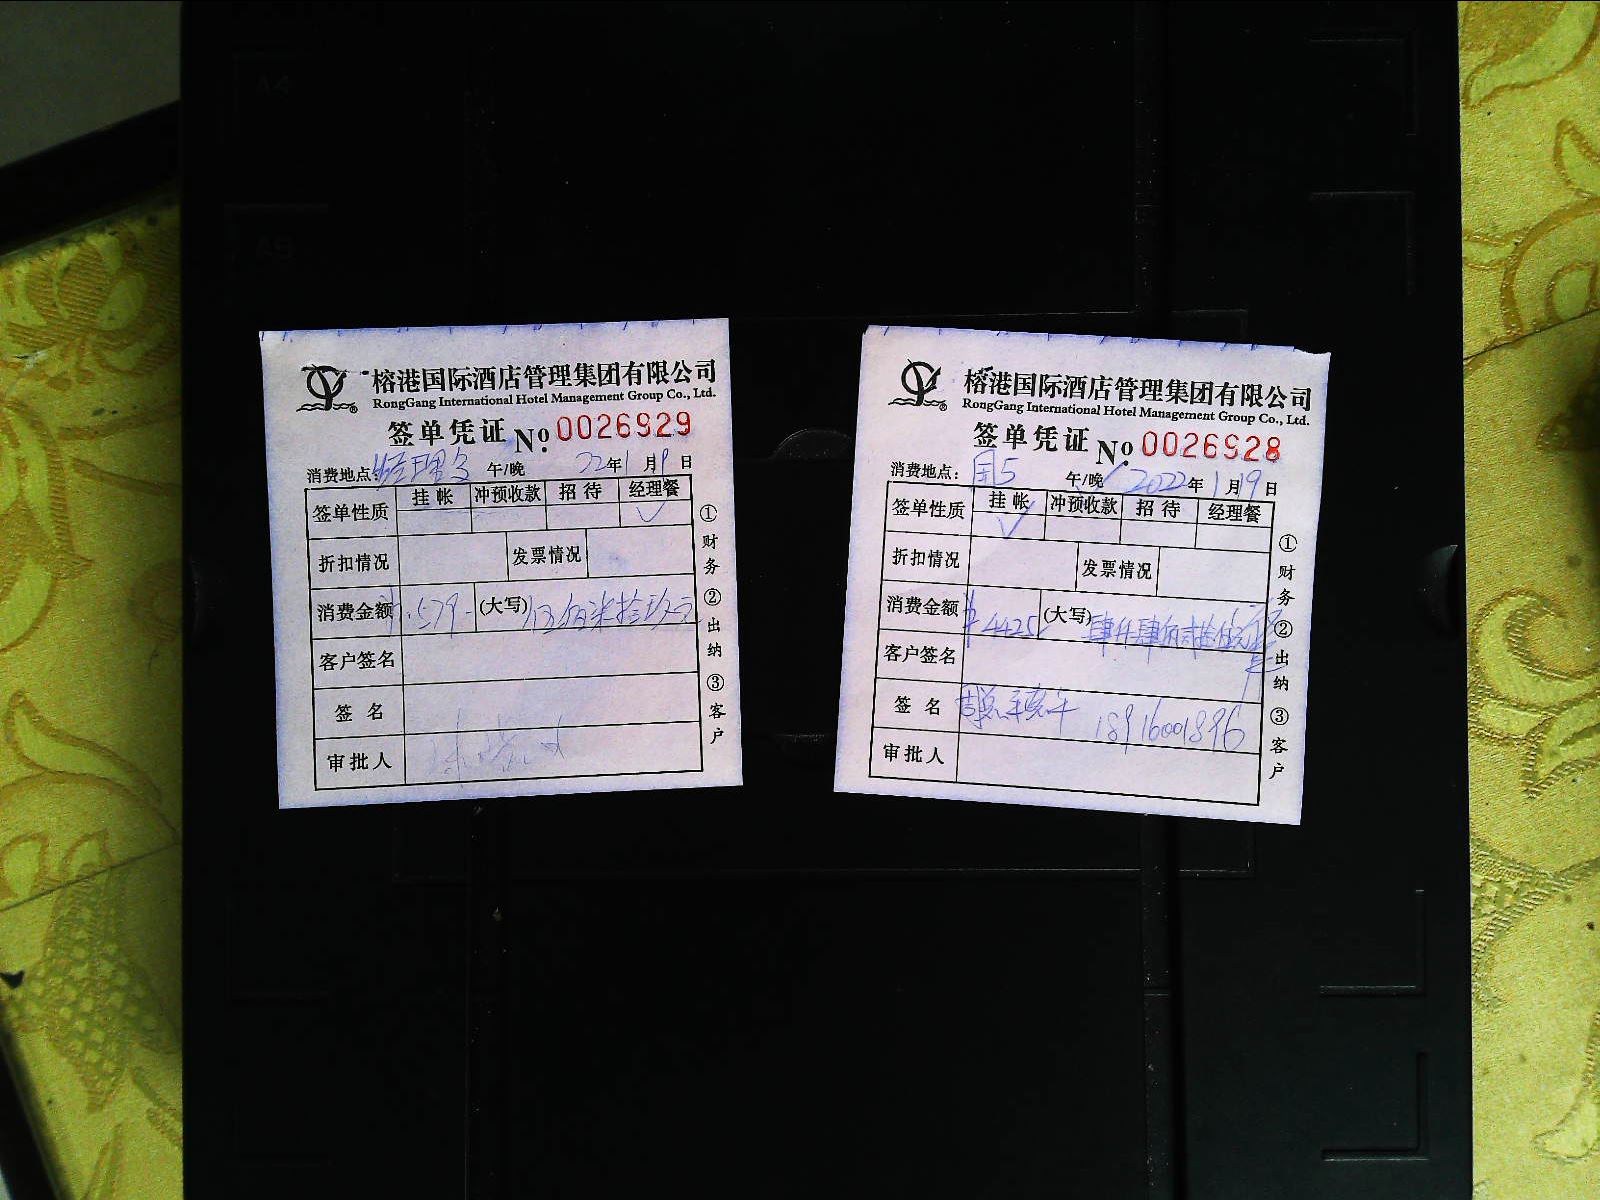 榕港国际酒店管理集团有限公司
RongGang International Hotel Management Group Co., Ltd.
签单凭证 No. 0026929
消费地点: 经理餐 午/晚 22年1月19日
签单性质 挂帐 冲预收款 招待 经理餐
✓
折扣情况 发票情况
消费金额 ¥:579- (大写) 伍佰柒拾玖元
客户签名
签名
审批人
①财务 ②出纳 ③客户
榕港国际酒店管理集团有限公司
RongGang International Hotel Management Group Co., Ltd.
签单凭证 No. 0026928
消费地点: 国5 午/晚 ✓ 2022年1月19日
签单性质 挂帐 冲预收款 招待 经理餐
✓
折扣情况 发票情况
消费金额 ¥4425/ (大写) 肆仟肆佰贰拾伍元正
客户签名
签名 18916001896
审批人
①财务 ②出纳 ③客户
A4